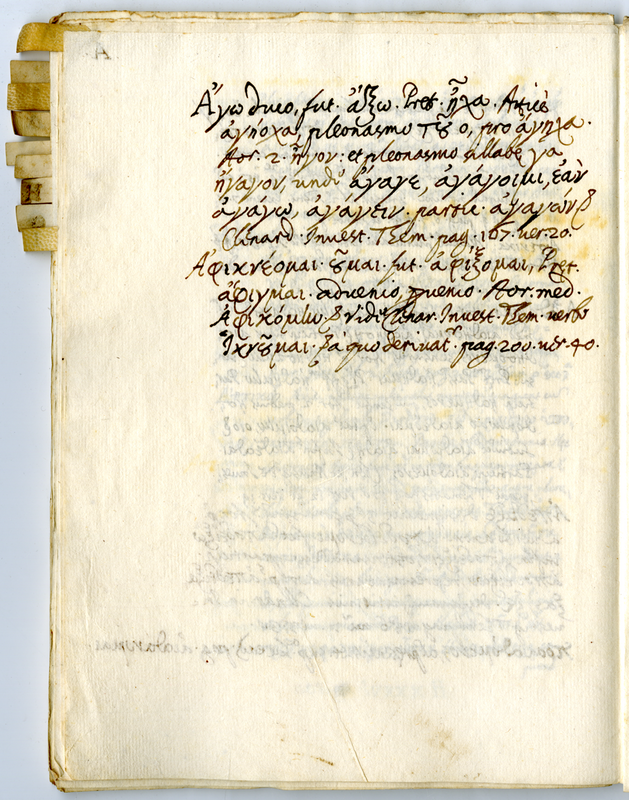 Ἄγω duco, fut. ἄξω. Pret. ἦχα. Atticè
ἀγήοχα, pleonasmo τοῦ ο, pro ἄγηχα.
Aor. 2. ἦγον: et pleonasmo sillabę γα
ἤγαγον, ἄγαγε, ἀγάγοιμι, ἐὰν
ἀγάγω, ἀγάγειν. partic. ἀγαγών.
Clenard. Invest. Them. pag. 107. ver. 20.
Ἀφικνέομαι. οῦμαι. fut. ἀφίξομαι, Pret.
ἀφιγμαι. advenio, Aor. med.
Clenar. Invest. Them. verbo
Ἱκνοῦμαι. à quo derivat. pag. 200. ver. 40.